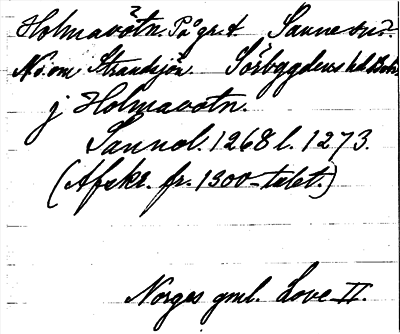 Holmavötn. På gr. t. Sanne o.
N.v. om Strandsjön. Sörbygdens hd. Bohl.
j Holmavotn.
Sannol. 1268 l. 1273.
(Afskr. fr. 1300-talet.)
Norges gml. Love II.